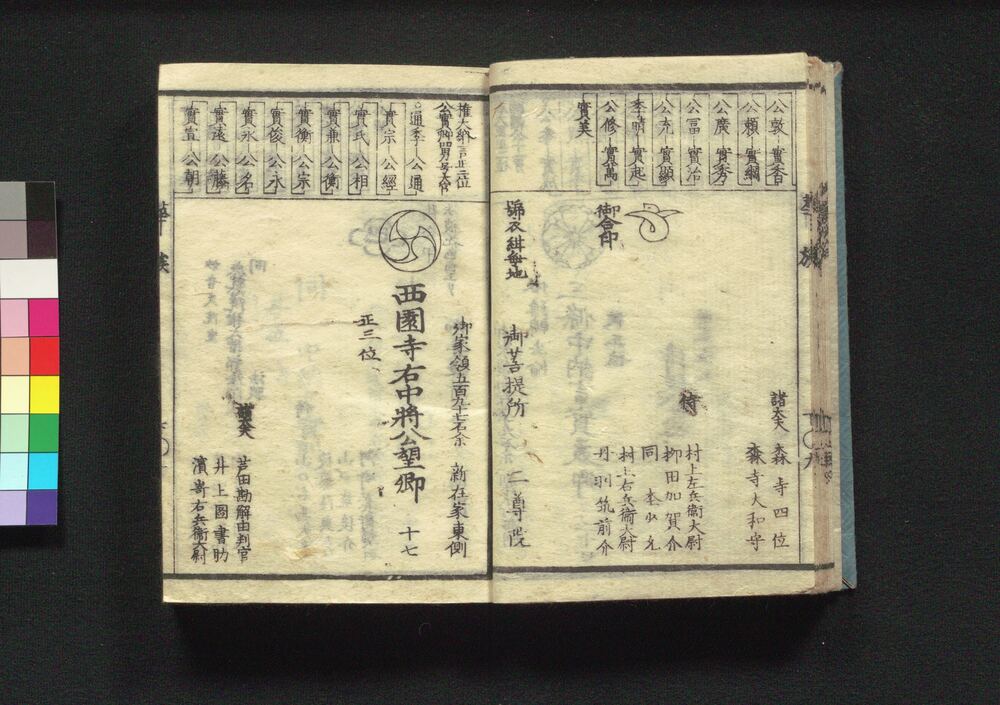 公敦 實香
公頼 實綱
公廣 實秀
公冨 實治
公充 實顕
季晴 實起
公修 實萬
實美
御合印
諸大夫
森寺四位
森寺大和守
侍
村上左兵衞大尉
栁田加賀介
同
村上右兵衞大尉
丹羽筑前介
御菩提所 二尊院
華族
九
權大納言正三位
公實卿男号大宮
通季 公通
實宗 公經
實氏 公相
實兼 公衡
實衡 公宗
實俊 公永
實永 公名
實遠 公藤
實宣 公朝
御家領五百九十七石余 新在家東側
西園寺右中將公望卿 十七
正三位
諸大夫
芦田勘解由判官
井上圖書助
濱嵜右兵衞大尉